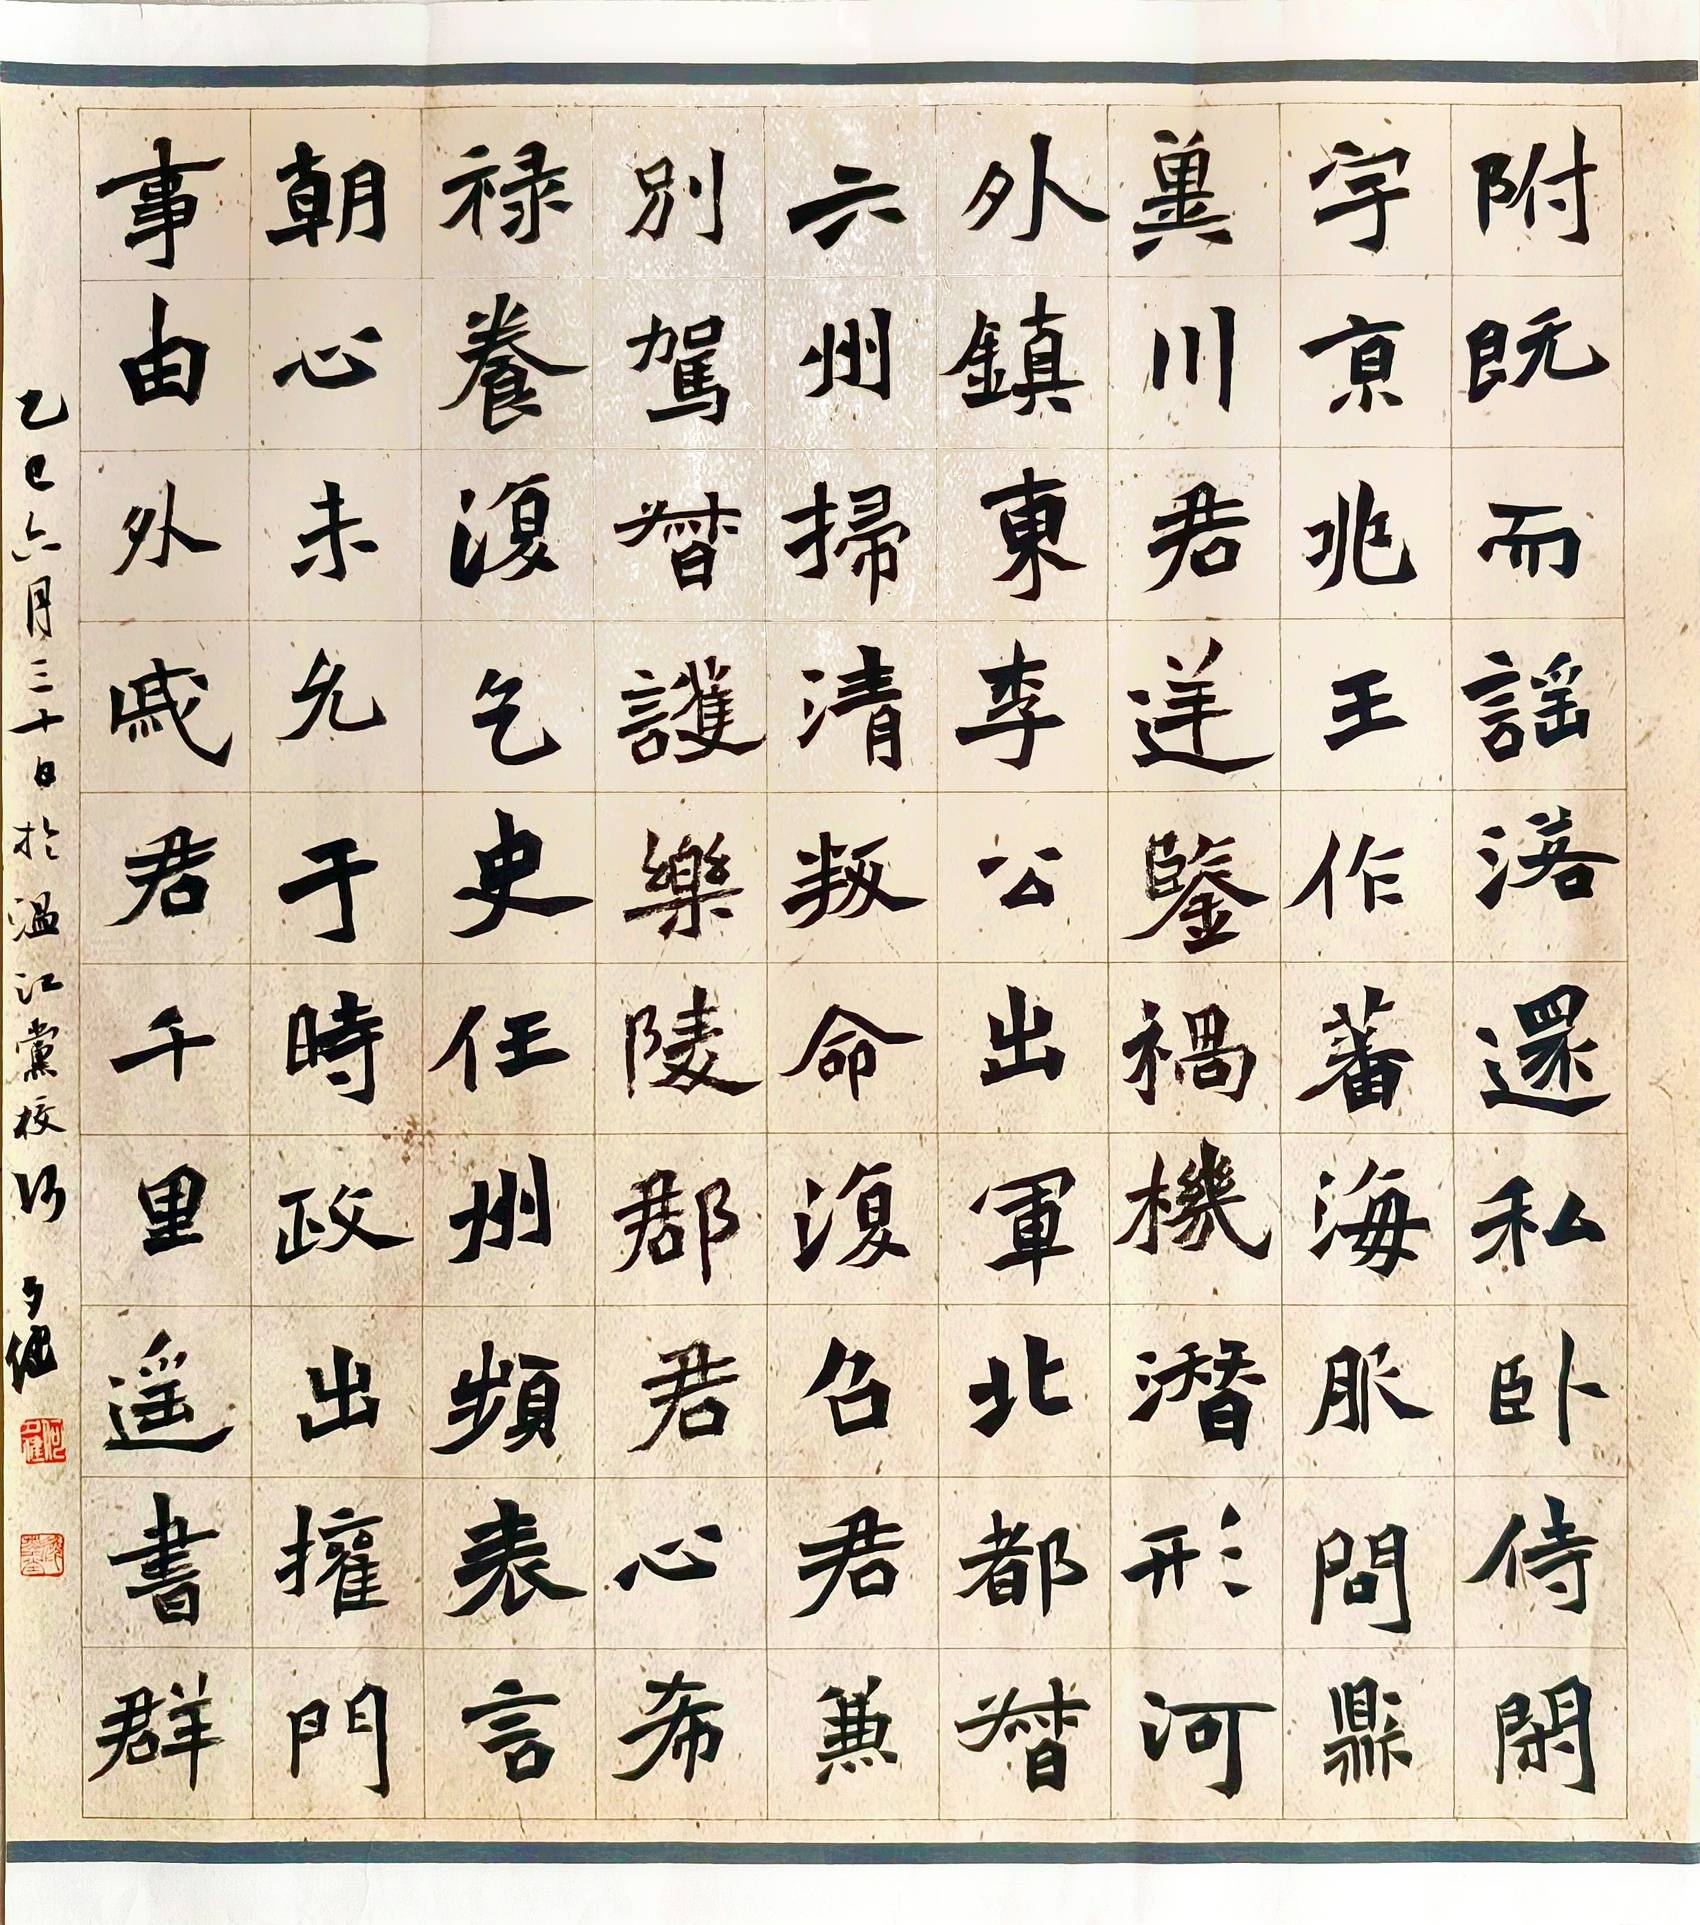 附既而謡落還私卧侍閑
字亰兆王作蕃海服問鼎
冀川君逆鑒禍機潛形河
外鎮東李公出軍北都督
六州掃清叛命復召君兼
別駕督護樂陵郡君心希
禄養復乞史任州頻表言
朝心未允于時政出擁門
事由外戚君千里遥書群
乙巳六月三十日於温江黨校何